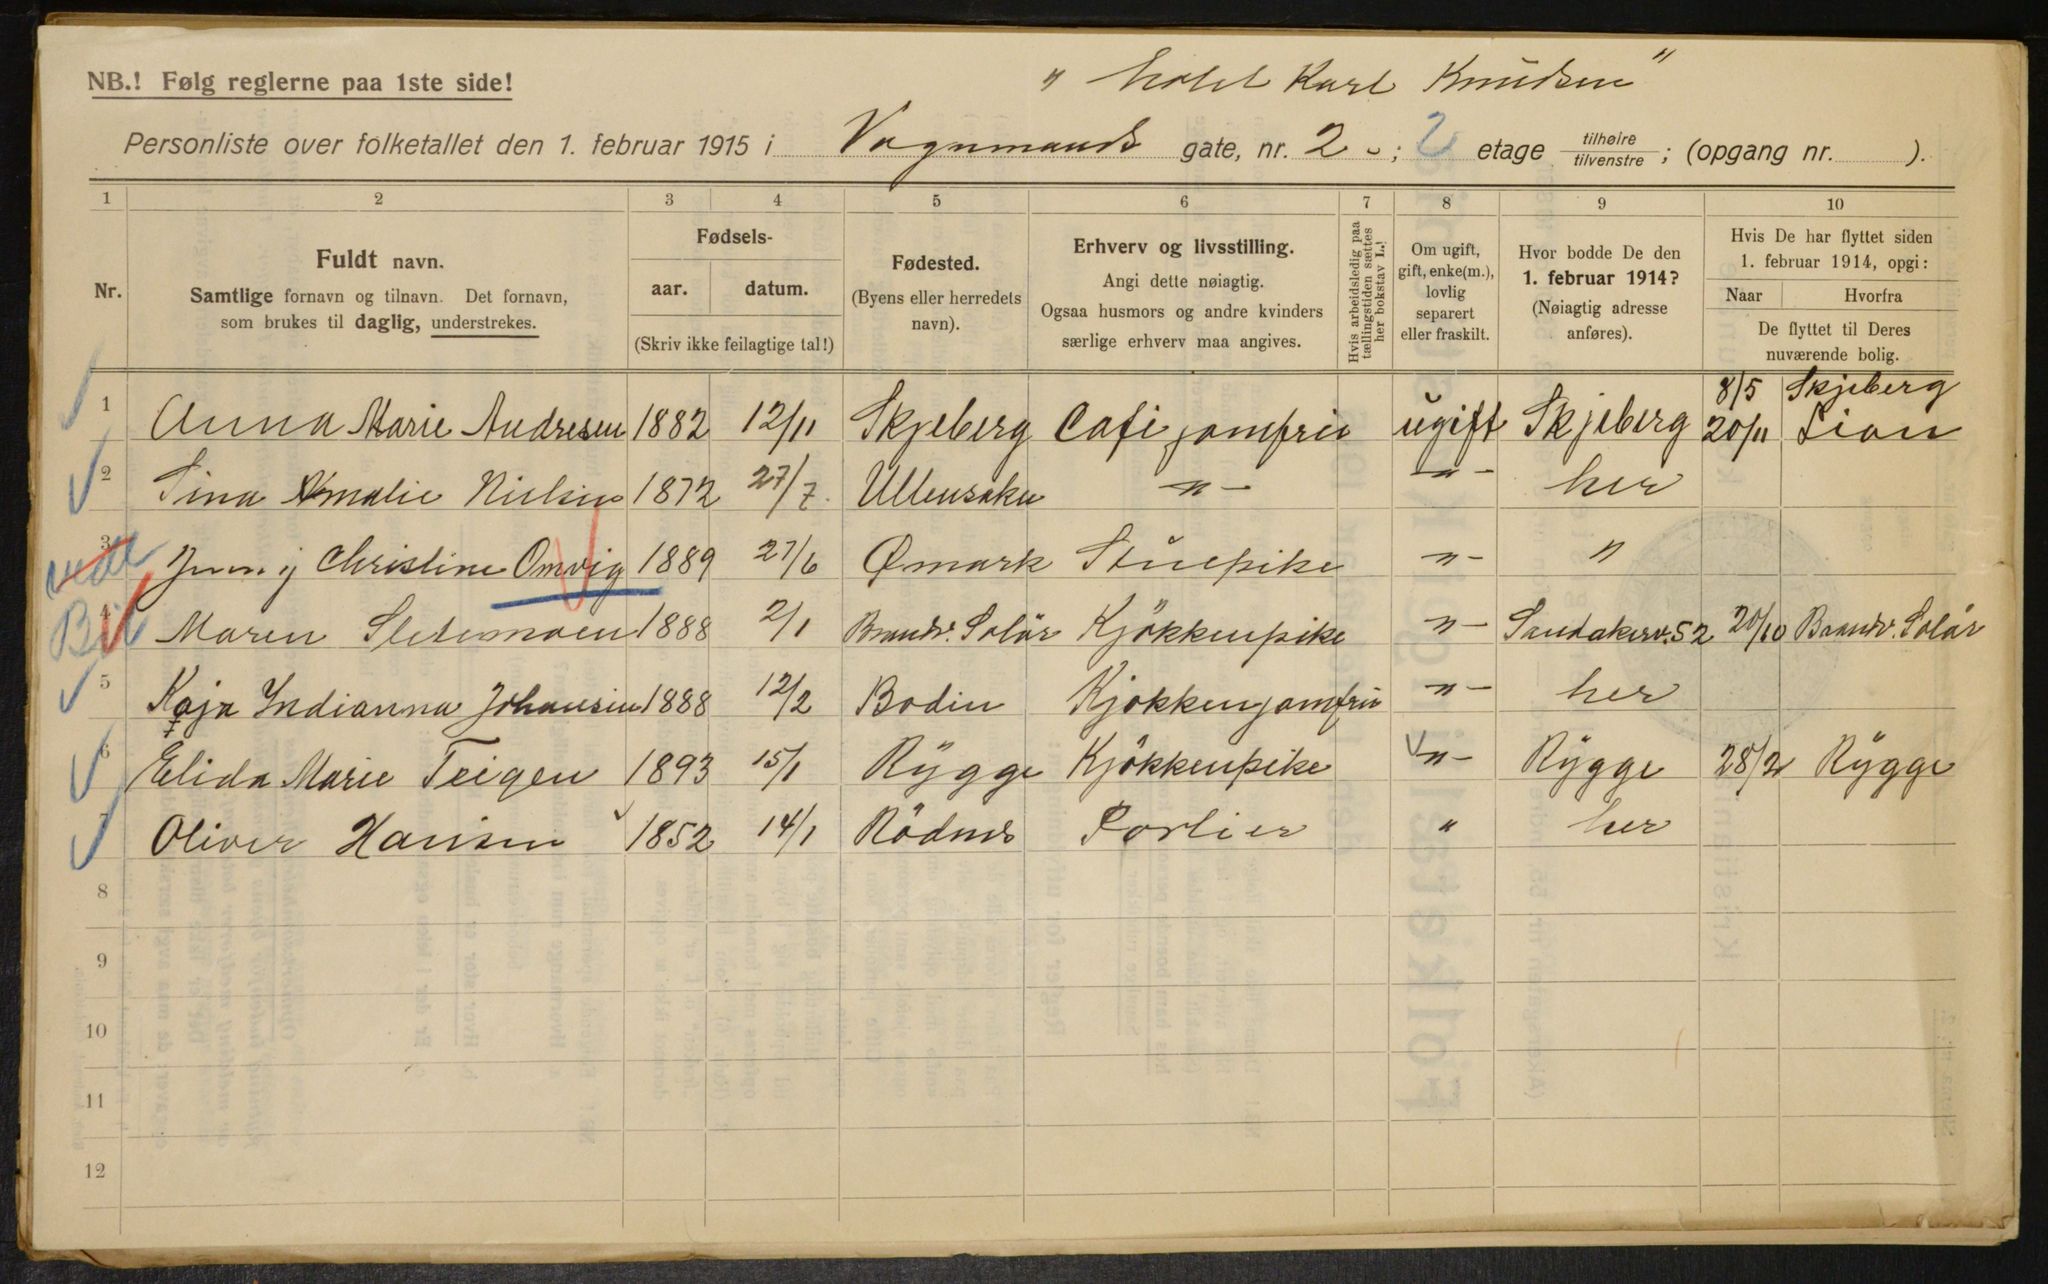 NB.! Følg reglerne paa 1ste side!
" Hotel Karl Knudsen "
Personliste over folketallet den 1. februar 1915 i Vognmands gate, nr. 2 - ; 2 etage tilhøire / tilvenstre ; (opgang nr. ).
1 2 3 4 5 6 7 8 9 10
Nr.
Fuldt navn.
Samtlige fornavn og tilnavn. Det fornavn,
som brukes til daglig, understrekes.
Fødsels-
aar. datum.
(Skriv ikke feilagtige tal!)
Fødested.
(Byens eller herredets
navn).
Erhverv og livsstilling.
Angi dette nøiagtig.
Ogsaa husmors og andre kvinders
særlige erhverv maa angives.
Hvis arbeidsledig paa
tællingstiden sættes
her bokstav L.!
Om ugift,
gift, enke(m.),
lovlig
separert
eller fraskilt.
Hvor bodde De den
1. februar 1914?
(Nøiagtig adresse
anføres).
Hvis De har flyttet siden
1. februar 1914, opgi:
Naar Hvorfra
De flyttet til Deres
nuværende bolig.
8/5 Skjeberg
1 Anna Marie Andresen 1882 12/11 Skjeberg Cafe jomfru ugift Skjeberg 20/11 Lian
2 Lina Amalie Nielsen 1872 27/7. Ullensaker -"- -"- her
3 Jenny Christine Omvig 1889 27/6 Ømark Stuepike -"- "
4 Maren Sletmoen 1888 2/1 Brandv. Solör Kjökkenpike -"- Sandakerv. 52 20/10 Brandv. Solör
5 Kaja Indianna Johansen 1888 12/2 Bodin Kjøkkenjomfru -"- her
6 Elida Marie Teigen 1893 15/1 Rygge Kjökkenpike -"- Rygge 28/2 Rygge
7 Oliver Hansen 1852 14/1 Rödnes Portier " her
8
9
10
11
12